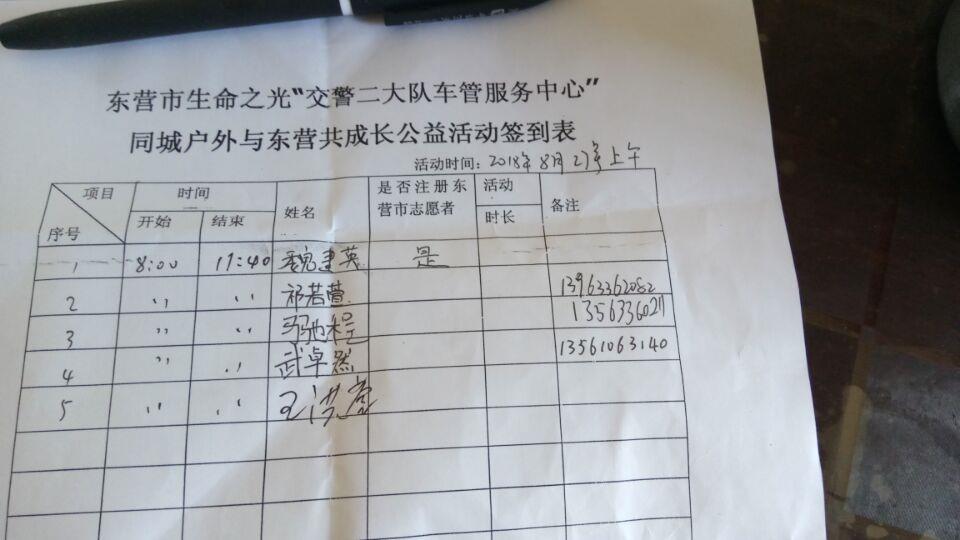 东营市生命之光“交警二大队车管服务中心”
同城户外与东营共成长公益活动签到表
活动时间：2018年8月27号上午
项目 时间 姓名 是否注册东 活动 备注
序号 开始 结束 营市志愿者 时长
1 8:00 11:40 魏建英 是
2 〃 〃 祁若萱 13963362082
3 〃 〃 马驰程 1356336027
4 〃 〃 武卓然 13561063140
5 〃 〃 王洪